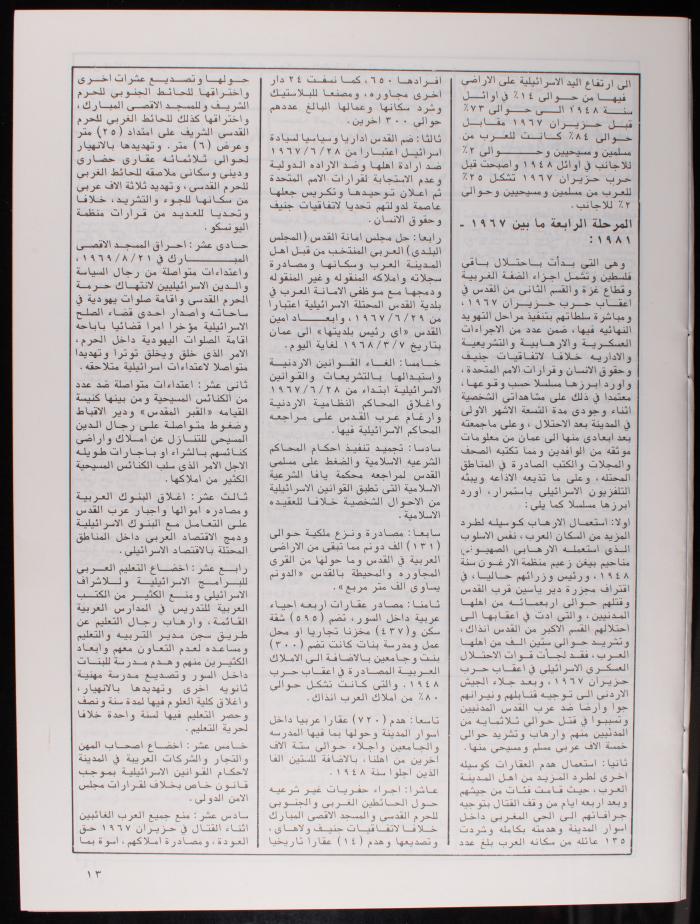 الى ارتفاع اليد الاسرائيلية على الاراضى
فيها من حوالى ١٤٪ في اوائل
سنة ١٩٤٨ الى حوالى ٧٣٪
قبل حزيران ١٩٦٧ مقابل
حوالى ٨٤٪ كانت للعرب من
مسلمين ومسيحيين وحوالى ٢٪
للاجانب في اوائل ١٩٤٨ واصبحت قبل
حرب حزيران ١٩٦٧ تشكل ٢٥٪
للعرب من مسلمين ومسيحيين وحوالى
٢٪ للاجانب.
المرحلة الرابعة ما بين ١٩٦٧ -
١٩٨١ :
وهى التى بدأت باحتلال باقى
فلسطين وتشمل اجزاء الضفة الغربية
وقطاع غزة والقسم الثانى من القدس في
اعقاب حرب حزيران ١٩٦٧،
ومباشرة سلطاتهم بتنفيذ مراحل التهويد
النهائيه فيها، ضمن عدد من الاجراءات
العسكرية والارهابية والتشريعية
والاداريه خلافا لاتفاقيات جنيف
وحقوق الانسان وقرارات الامم المتحدة،
واورد ابرزها مسلسلا حسب وقوعها،
معتمدا في ذلك على مشاهداتى الشخصية
اثناء وجودى مدة التسعة الاشهر الاولى
في المدينة بعد الاحتلال، وعلى ماجمعته
بعد ابعادى منها الى عمان من معلومات
موثقه من الوافدين ومما تكتبه الصحف
والمجلات والكتب الصادرة في المناطق
المحتله، وعلى ما تذيعه الاذاعه ويبثه
التلفزيون الاسرائيلى باستمرار، اورد
ابرزها مسلسلا كما يلى:
اولا: استعمال الارهاب كوسيله لطرد
المزيد من السكان العرب، نفس الاسلوب
الذى استعمله الارهابي الصهيونى
مناحيم بيغن زعيم منظمة الارغون سنة
١٩٤٨، ورئيس وزرائهم حاليا، في
اقتراف مجزرة دير ياسين قرب القدس
وقتلهم حوالى اربعمائه من اهلها
المدنيين، والتى ادت في اعقابها الى
احتلالهم القسم الاكبر من القدس انذاك،
وتشريد حوالى ستين الف من اهلها
العرب، فقد لجأت قوات الاحتلال
العسكرى الاسرائيلى في اعقاب حرب
حزيران ١٩٦٧، وبعد جلاء الجيش
الاردنى الى توجيه قنابلهم ونيرانهم
جوا وارضا ضد عرب القدس المدنيين
وتسببوا في قتل حوالى ثلاثمايه من
المدنيين منهم وارهاب وتشريد حوالى
خمسة الاف عربى مسلم ومسيحى منها.
ثانيا: استعمال هدم العقارات كوسيله
اخرى لطرد المزيد من اهل المدينة
العرب، حيث قامت فئات من جيشهم
وبعد اربعه ايام من وقف القتال بتوجيه
جرافاتهم الى الحى المغربى داخل
اسوار المدينة وهدمته بكامله وشردت
١٣٥ عائله من سكانه العرب بلغ عدد
افرادها ٦٥٠، كما نسفت ٢٤ دار
اخرى مجاوره، ومصنعا للبلاستيك
وشرد سكانها وعمالها البالغ عددهم
حوالى ٣٠٠ اخرين.
ثالثا: ضم القدس اداريا وسياسيا لسيادة
اسرائيل اعتبارا من ١٩٦٧/٦/٢٨
ضد ارادة اهلها وضد الاراده الدولية
وعدم الاستجابة لقرارات الامم المتحدة
ثم اعلان توحيدها وتكريس جعلها
عاصمة لدولتهم تحديا لاتفاقيات جنيف
وحقوق الانسان.
رابعا: حل مجلس امانة القدس (المجلس
البلدى) العربى المنتخب من قبل اهل
المدينة العرب وسكانها ومصادرة
سجلاته واملاكه المنقوله وغير المنقوله
ودمجها مع موظفى الامانة العرب في
بلدية القدس المحتلة الاسرائيلية اعتبارا
من ١٩٦٧/٦/٢٩، وابعاد امين
القدس «اى رئيس بلديتها» الى عمان
بتاريخ ١٩٦٨/٣/٧ لغاية اليوم.
خامسا: الغاء القوانين الاردنية
واستبدالها بالتشريعات والقوانين
الاسرائيلية ابتداء من ١٩٦٧/٦/٢٨
واغلاق المحاكم النظامية الاردنية
وارغام عرب القدس على مراجعه
المحاكم الاسرائيلية فيها.
سادسا: تجميد تنفيذ احكام المحاكم
الشرعيه الاسلامية والضغط على مسلمى
القدس لمراجعه محكمة يافا الشرعية
الاسلامية التى تطبق القوانين الاسرائيلية
من الاحوال الشخصية خلافا للعقيده
الاسلامية.
سابعا: مصادرة ونزع ملكية حوالى
(١٣١) الف دونم مما تبقى من الاراضى
العربية في القدس وما حولها من القرى
المجاوره والمحيطة بالقدس «الدونم
يساوى الف متر مربع».
ثامنا: مصادر عقارات اربعه احياء
عربية داخل السور، تضم (٥٩٥) شقة
سكن و(٤٣٧) مخزنا تجاريا او محل
عمل ومدرسة بنات كانت تضم (٣٠٠)
بنت وجامعين بالاضافة الى الاملاك
العربية المصادرة في اعقاب حرب
١٩٤٨. والتى كانت تشكل حوالى
٨٠٪ من املاك العرب انذاك.
تاسعا: هدم (٧٢٠) عقارا عربيا داخل
اسوار المدينة وحولها بما فيها المدرسه
والجامعين واجلاء حوالى ستة الاف
اخرين من اهلها، بالاضافة للستين الفا
الذين اجلوا سنة ١٩٤٨.
عاشرا: اجراء حفريات غير شرعيه
حول الحائطين الغربى والجنوبى
للحرم القدسى والمسجد الاقصى المبارك
خلافا لاتفاقيات جنيف ولاهاى،
وتصديعها وهدم (١٤) عقارا تاريخيا
حولها وتصديع عشرات اخرى
واختراقها للحائط الجنوبى للحرم
الشريف وللمسجد الاقصى المبارك،
واختراقها كذلك للحائط الغربى للحرم
القدسى الشريف على امتداد (٢٥) متر
وعرض (٦) متر. وتهديدها بالانهيار
لحوالى ثلاثمائه عقارى حضارى
ودينى وسكانى ملاصقه للحائط الغربى
للحرم القدسى، وتهديد ثلاثة الاف عربى
من سكانها للجوء والتشريد، خلافا
وتحديا للعديد من قرارات منظمة
اليونسكو.
حادى عشر: احراق المسجد الاقصى
المبارك في ١٩٦٩/٨/٢١،
واعتداءات متواصلة من رجال السياسة
والدين الاسرائيليين لانتهاك حرمة
الحرم القدسى واقامة صلوات يهودية في
ساحاته واصدار احدى قضاء الصلح
الاسرائيلية مؤخرا امرا قضائيا باباحه
اقامة الصلوات اليهودية داخل الحرم،
الامر الذى خلق ويخلق توترا وتهديدا
متواصلا لاعتداءات اسرائيلية متلاحقه.
ثانى عشر: اعتداءات متواصلة ضد عدد
من الكنائس المسيحية ومن بينها كنيسة
القيامه «القبر المقدس» ودير الاقباط
وضغوط متواصلة على رجال الدين
المسيحى للتنازل عن املاك واراضى
كنائسهم بالشراء او باجارات طويله
الاجل الامر الذى سلب الكنائس المسيحية
الكثير من املاكها.
ثالث عشر: اغلاق البنوك العربية
ومصادره اموالها واجبار عرب القدس
على التعامل مع البنوك الاسرائيلية
ودمج الاقتصاد العربى داخل المناطق
المحتلة بالاقتصاد الاسرائيلى.
رابع عشر: اخضاع التعليم العربى
للبرامج الاسرائيلية وللاشراف
الاسرائيلى ومنع الكثير من الكتب
العربية للتدريس في المدارس العربية
القائمة، وارهاب رجال التعليم عن
طريق سجن مدير التربيه والتعليم
ومساعده لعدم التعاون معهم وابعاد
الكثيرين منهم وهدم مدرسة للبنات
داخل السور وتصديع مدرسة مهنية
ثانويه اخرى وتهديدها بالانهيار،
واغلاق كلية العلوم فيها لمدة سنة ونصف
وحصر التعليم فيها لسنة واحدة خلافا
لحرية التعليم.
خامس عشر: اخضاع اصحاب المهن
والتجار والشركات العربية في المدينة
لاحكام القوانين الاسرائيلية بموجب
قانون خاص بخلاف لقرارات مجلس
الامن الدولى.
سادس عشر: منع جميع العرب الغائبين
اثناء القتال في حزيران ١٩٦٧ حق
العودة، ومصادرة املاكهم، اسوة بما
١٣